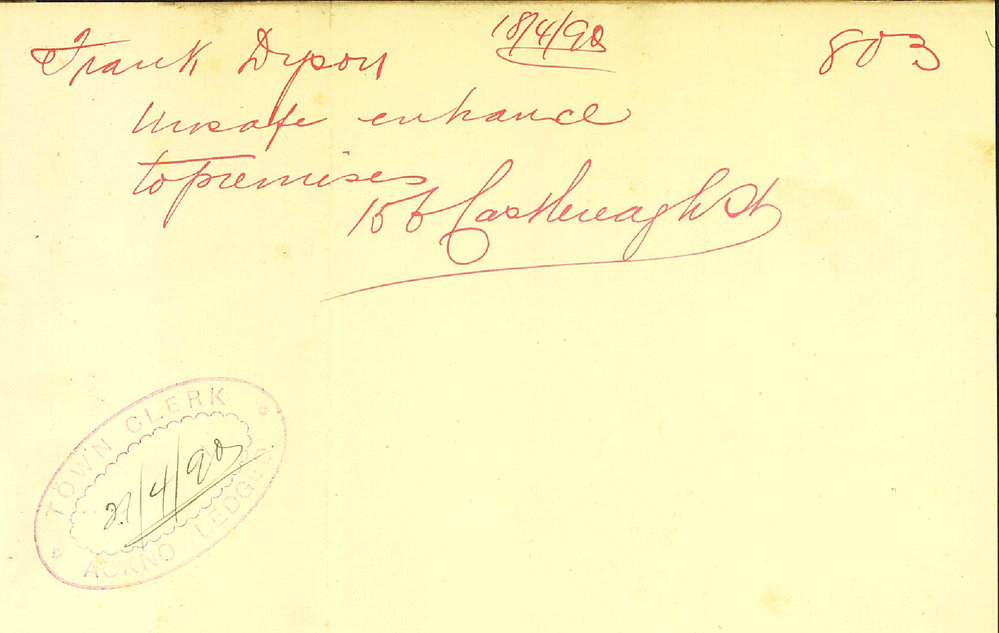 Frank Dyson
18/4/90
803
Unsafe entrance
to premises
156 Castlereagh St
TOWN CLERK
21/4/90
ACKNOWLEDGED